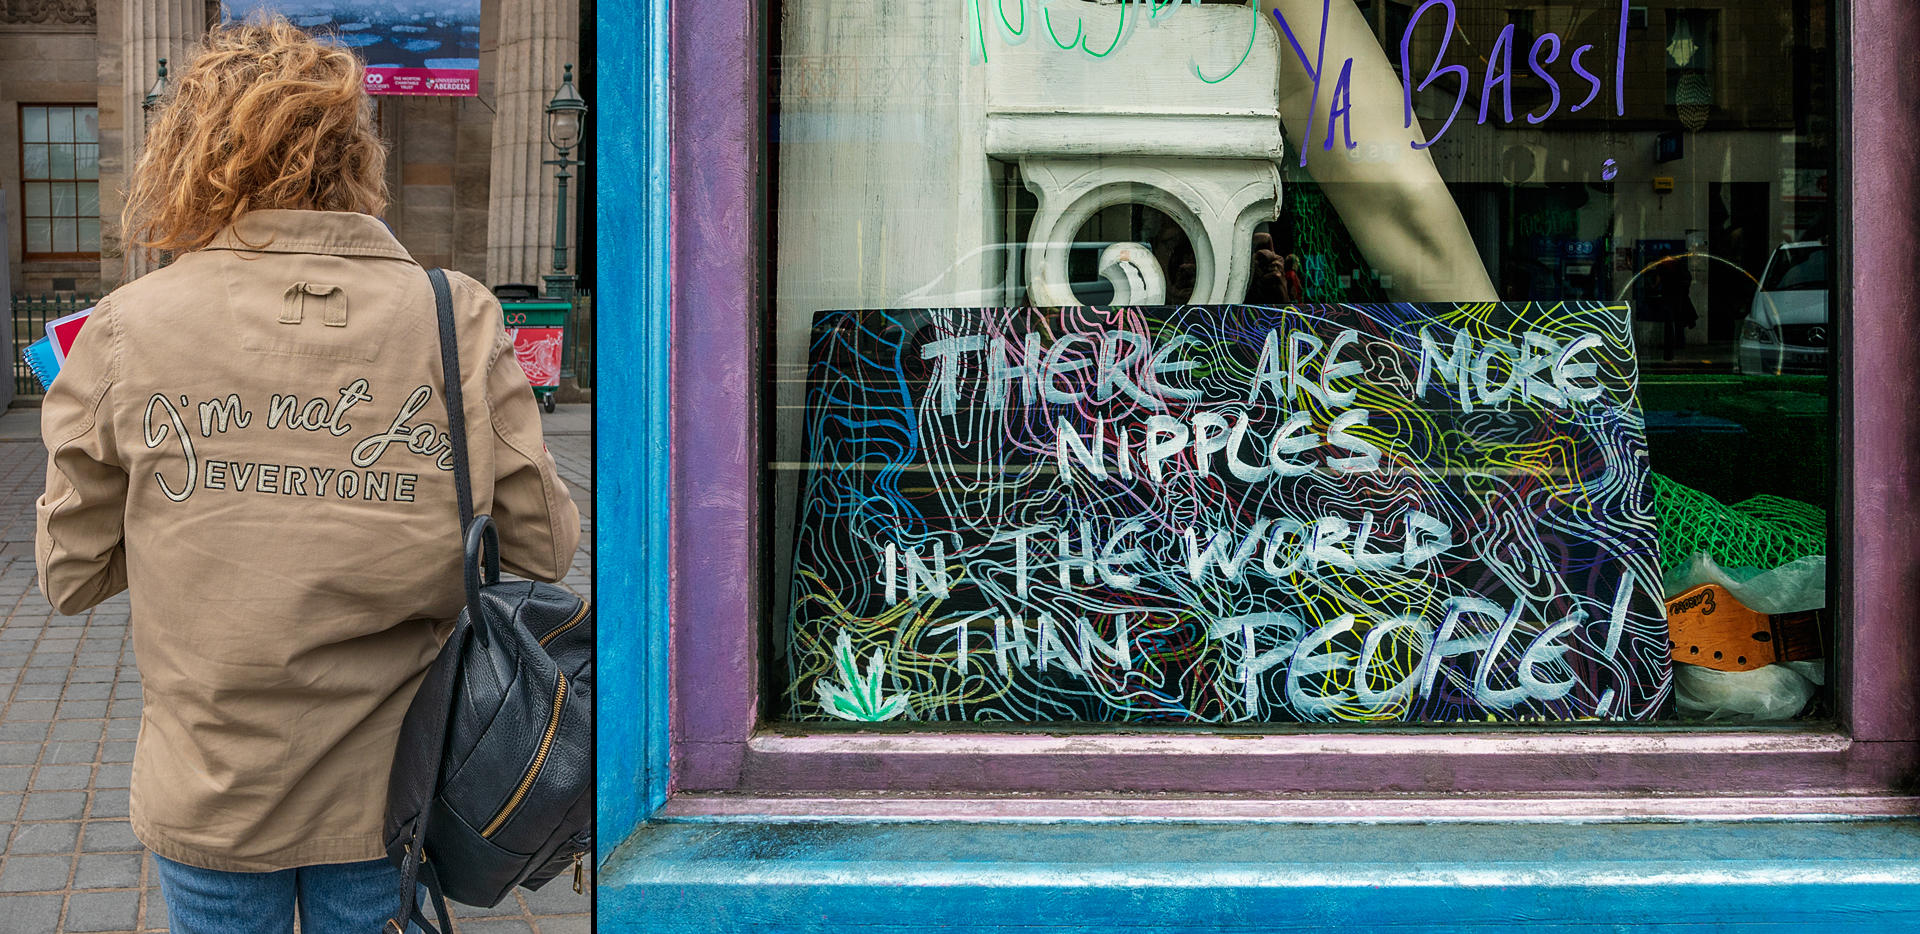 THE MORTON
CHARITABLE
TRUST
UNIVERSITY OF
ABERDEEN
I'm not for
EVERYONE
YA BASS!
THERE ARE MORE
NIPPLES
IN THE WORLD
THAN PEOPLE!
Encore